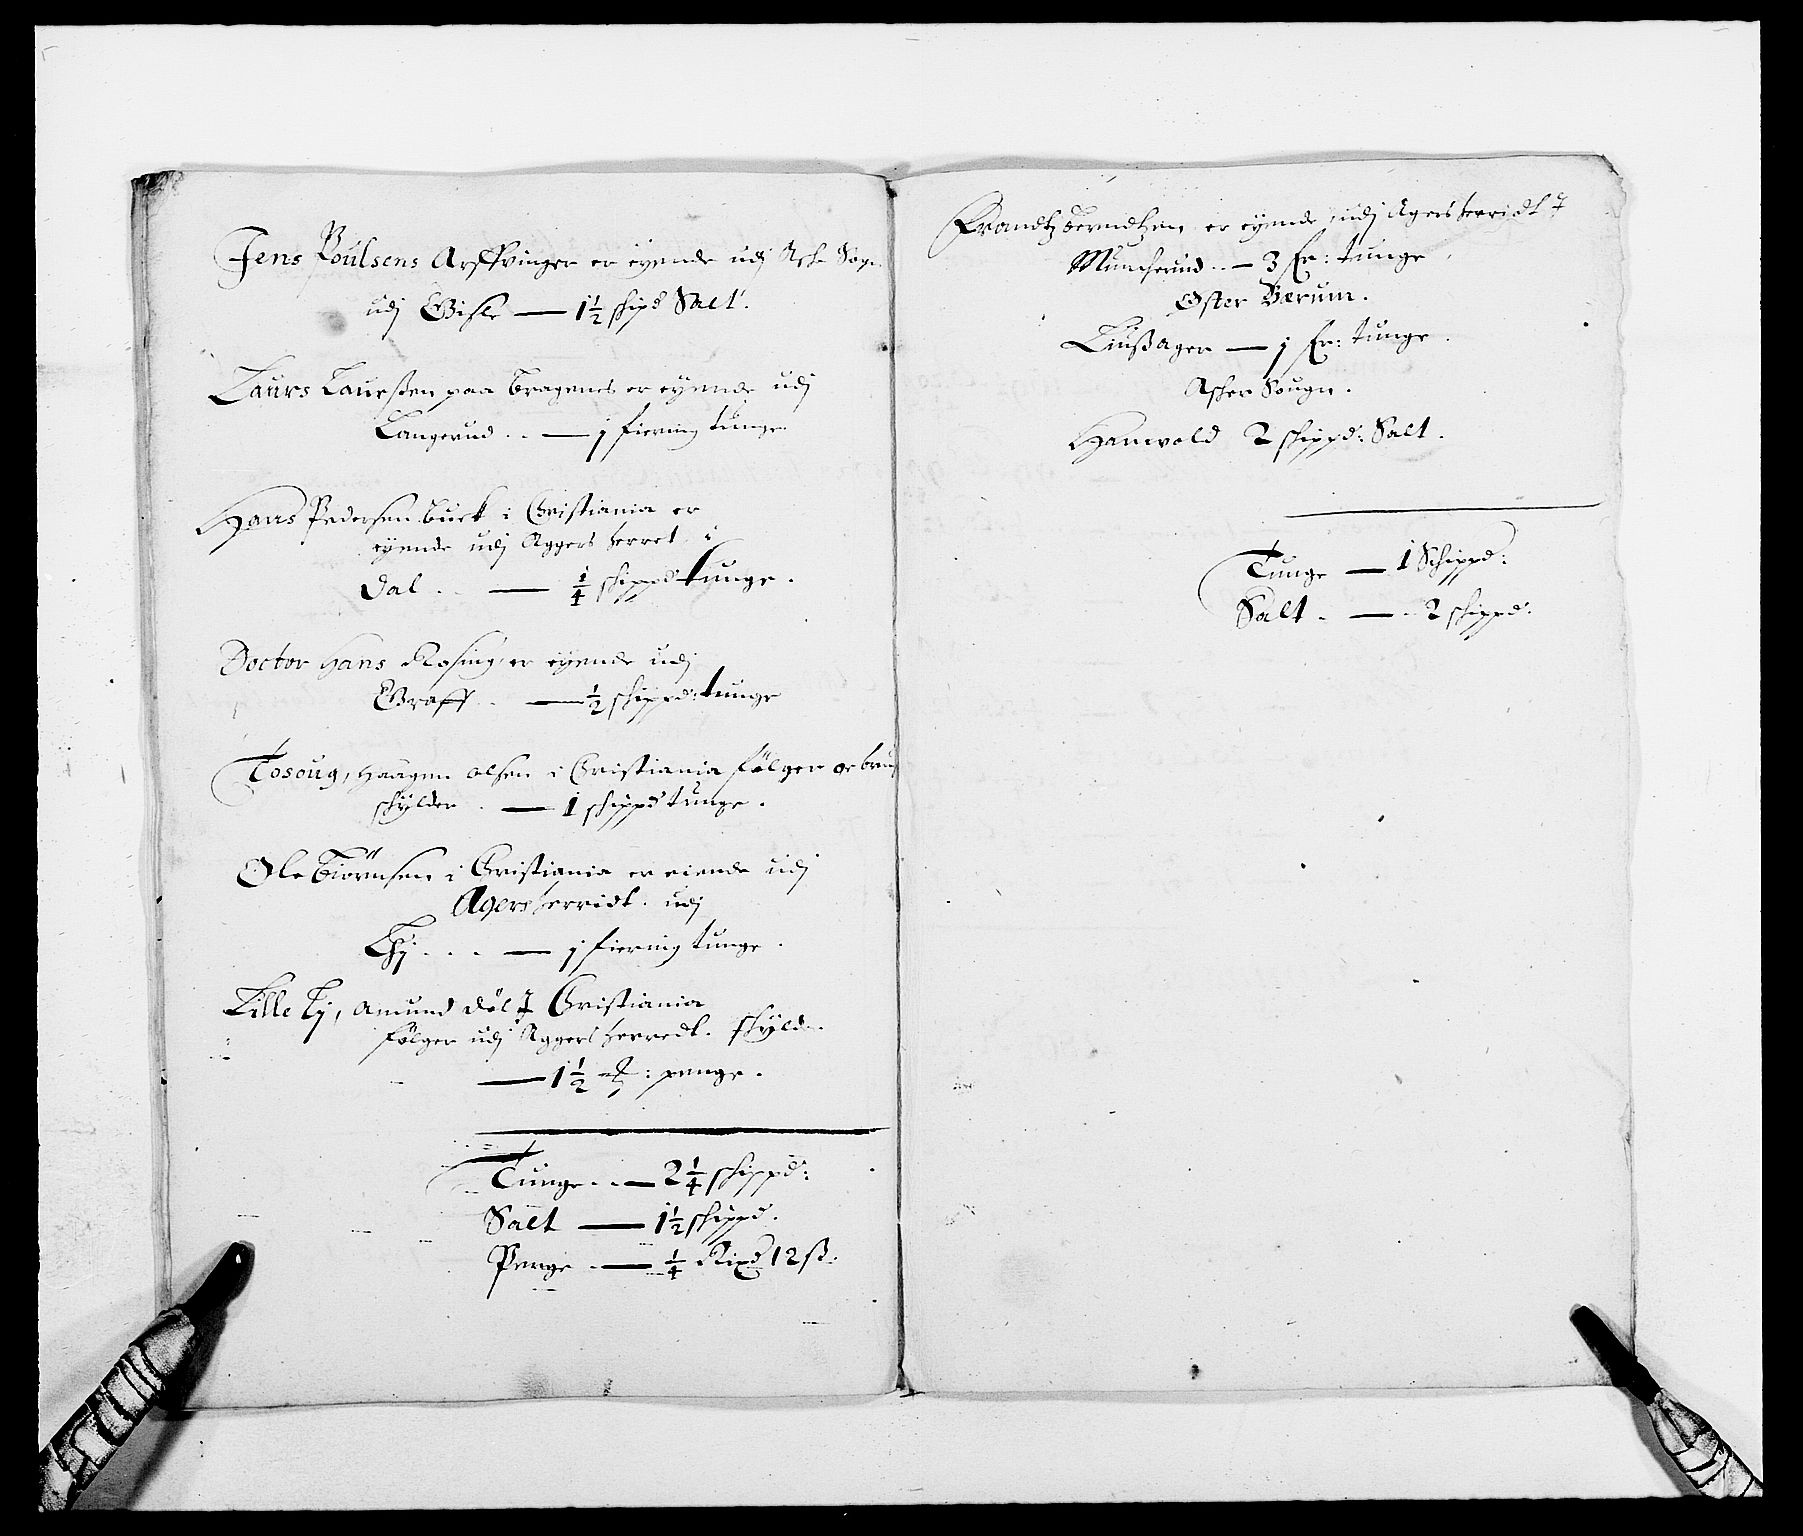 Jens Poulsens Arffvinger er eyende udj Asker Sogn
udj Gisle — 1 1/2 shipd Salt.
Laurs Laurssen paa Bragenes er eyende udj
Langerud . . — j fiering tunge
Hans Pedersen Buck i Christiania er
eyende udj Aggers herret i
Dal . . — 1/4 shippd tunge.
Doctor Hans Rosing er eyende udj
Graff . . — 1/2 shippd: tunge
Tosoug, Haagen Olsen i Christiania følger oc brug
schylder . — 1 shippd tunge.
Ole Biørnsen i Christiania er eiende udj
Agersherridt. udj
Lhj . . . — j fiering tunge.
Lille Lj, Amund Døl i Christiania
følger udj Aggers herredt. schylder
— 1 1/2 : penge.
Tunge . . — 2 1/4 shippd:
Salt — 1 1/2 shippd.
Penge . — 1/4 Rixd 12 ß.
Frandtz Berndtzen er eyende udj Agersherridt i
Muncherud . . — 3 fr: tunge.
Øster Bærum.
Liussager — j fr: tunge.
Asker Sougn.
Hanevold 2 shippd: Salt.
Tunge — 1 Schippd:
Salt . — . 2 shippd: